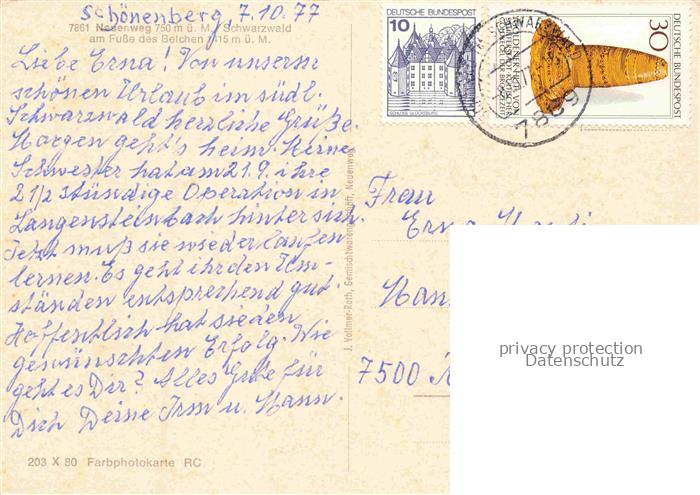 Schönenberg, 7.10.77
7861 Neuenweg 750 m ü. M. Schwarzwald
am Fuße des Belchen 1415 m ü. M.
Liebe Erna! Von unserm
schönen Urlaub im südl.
Schwarzwald herzliche Grüße.
Morgen geht's heim. Meine
Schwester hat am 21.9. ihre
2 1/2 stündige Operation in
Langensteinbach hinter sich.
Jetzt muß sie wieder laufen
lernen. Es geht ihr den Um-
ständen entsprechend gut.
Hoffentlich hat sie den
gewünschten Erfolg. Wie
geht es Dir? Alles Gute für
Dich Deine Irm u. Mann.
203 X 80 Farbphotokarte RC
J. Vollmer-Roth, Gemischtwarengeschäft, Neuenweg
DEUTSCHE BUNDESPOST
10
SCHLOSS GLÜCKSBURG
30
DEUTSCHE BUNDESPOST
7869
Frau
Erna
7500
privacy protection
Datenschutz